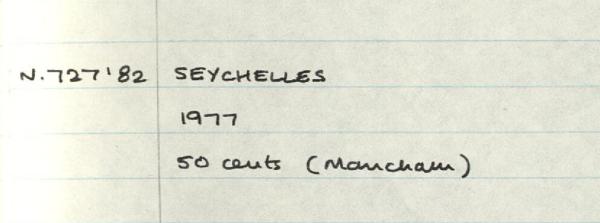 N.727'82 SEYCHELLES
1977
50 cents (Mancham)